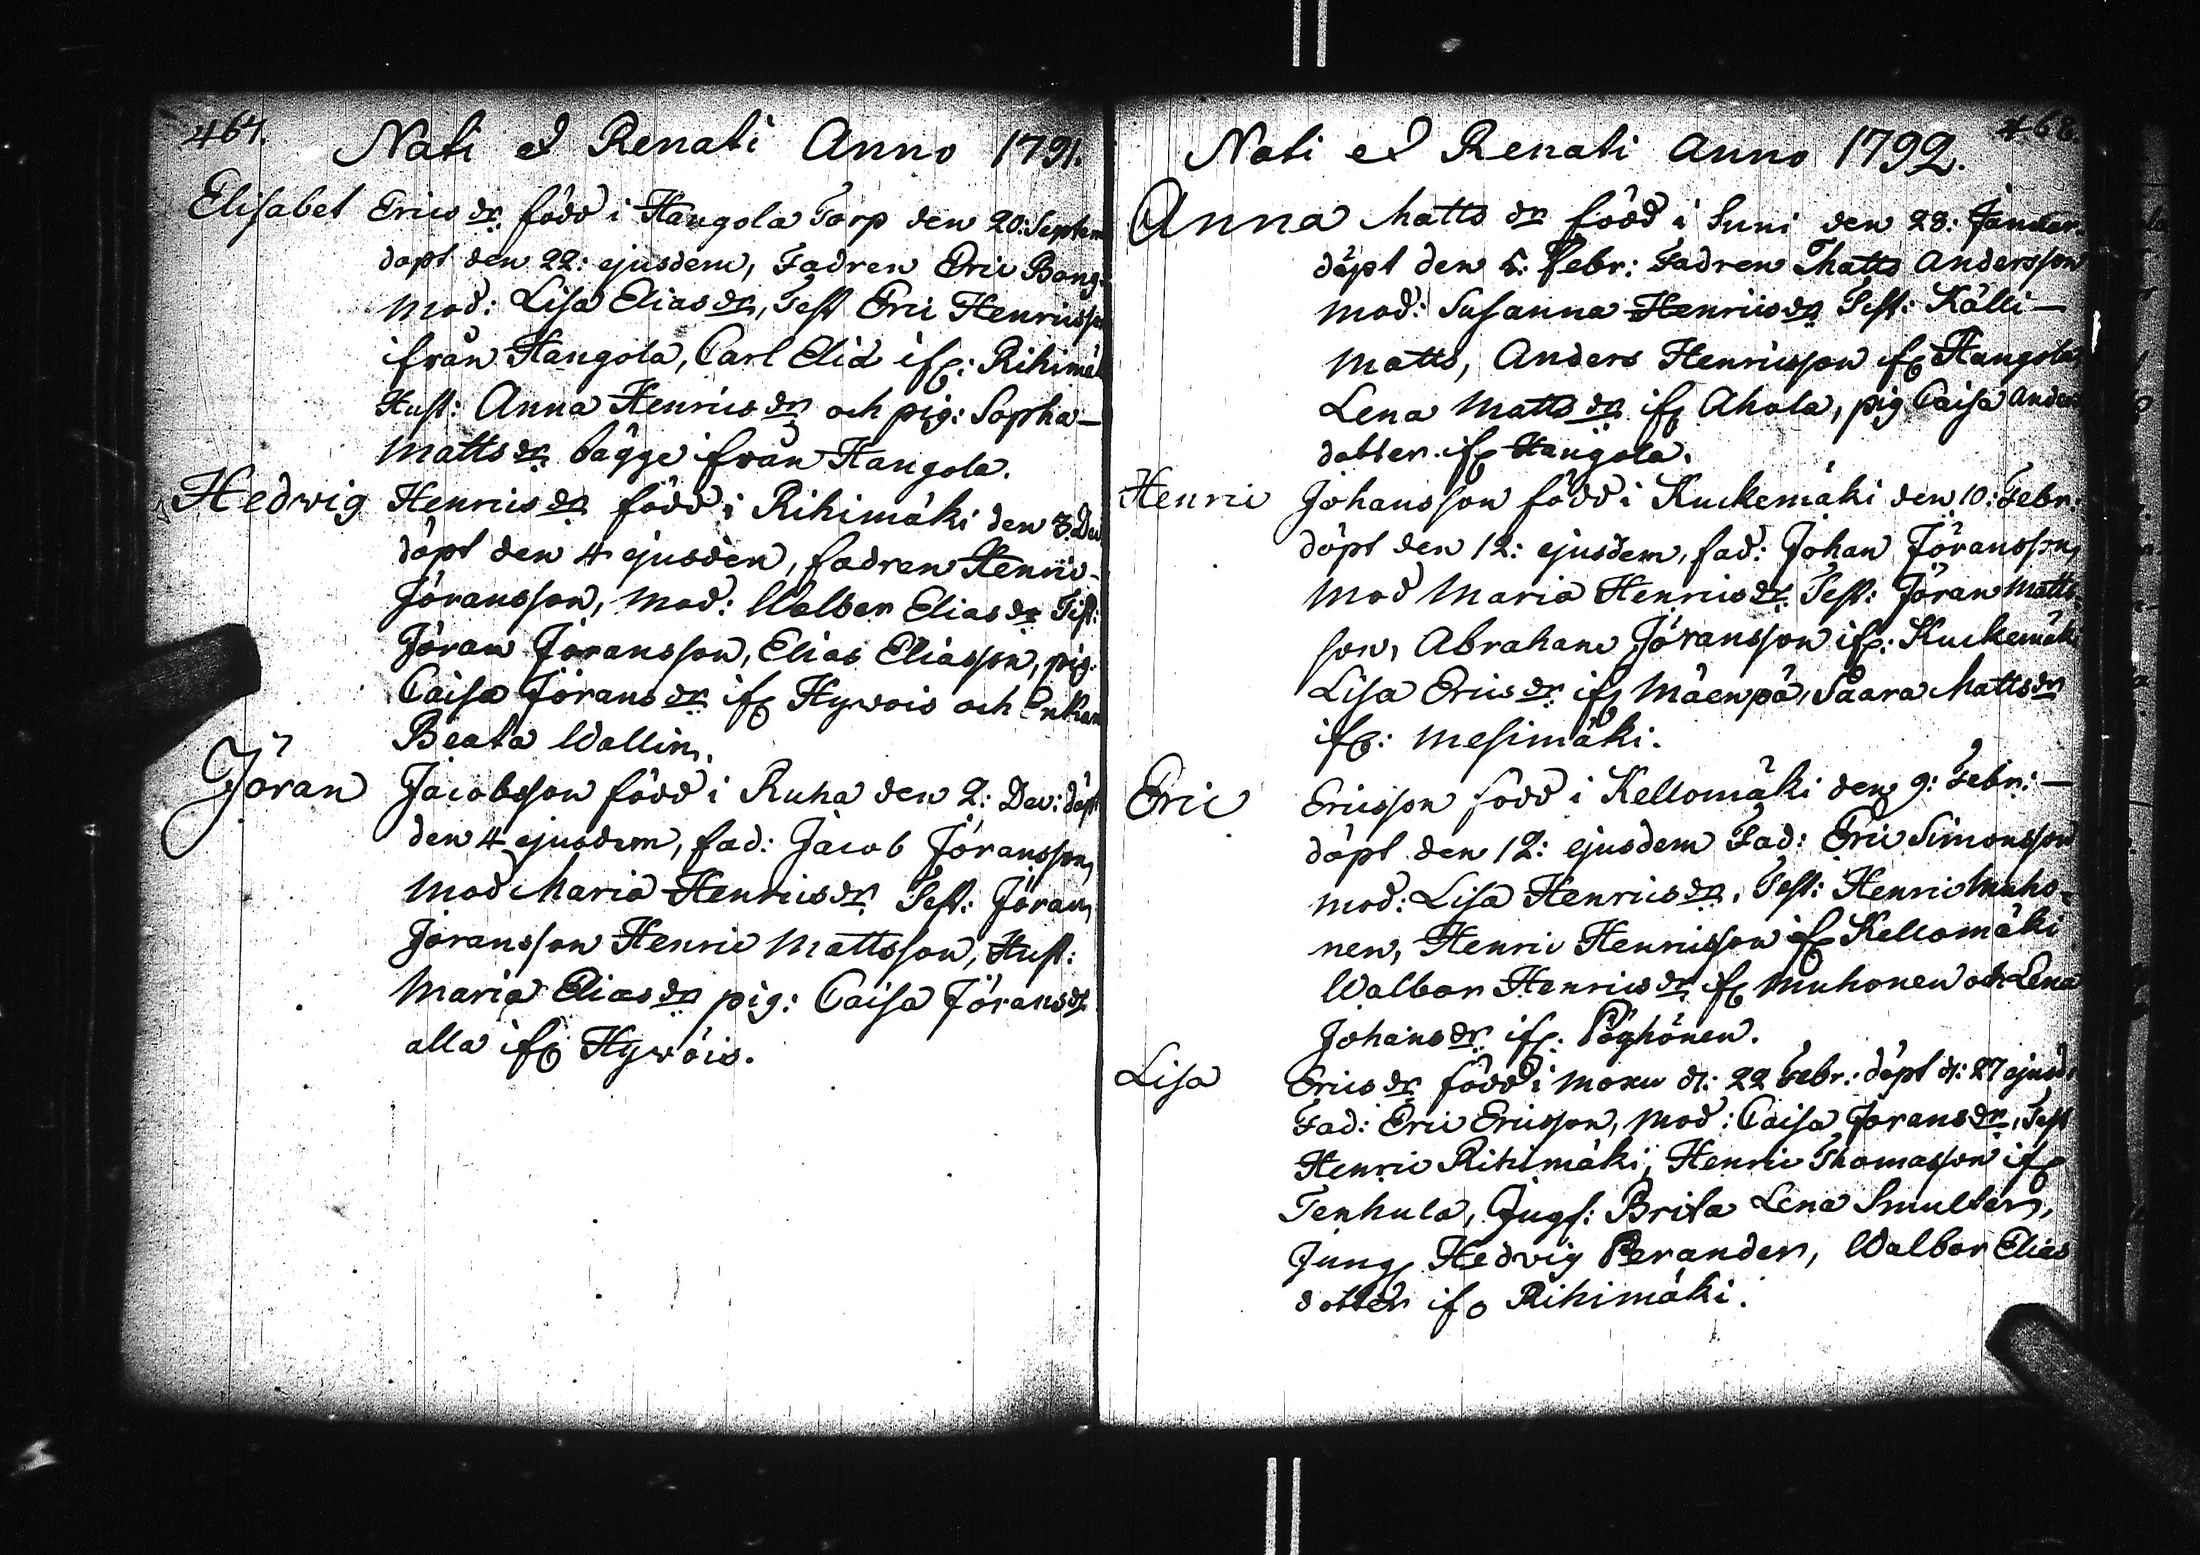 467.
Nati et Renati Anno 1791.
Elisabet Ericsdr född i Hangola Torp den 20: Septem
döpt den 22: ejusdem, Fadren Eric Bong:
Mod: Lisa Eliasdr, Test Eric Henricsson
ifrån Hangola, Carl Elid ifr: Rihimäk
Hust: Anna Henricsdr och pig: Sopha-
Mattsdr bägge ifrån Hangola.
Hedwig Henricsdr född i Rihimäki den 3. Dec
döpt den 4 ejusden, fadren Henric-
Jöransson, Mod: Walbor Eliasdr Test:
Jöran Jöransson, Elias Eliasson, pig:
Caisa Jöransdr ifr Hywöis och Enkan
Beata Wallin.
Jöran Jacobsson född i Ruha den 2: Dec: döpt
den 4 ejusdem, fad: Jacob Jöransson,
Mod Maria Henricsdr Test: Jöran
Jöransson Henric Mattsson, Hust:
Maria Eliasdr pig: Caisa Jöransdr
alla ifr Hywöis.
468.
Nati et Renati Anno 1792.
Anna Mattsdr född i Suni den 28: Januar.
döpt den 5: Febr: Fadren Matts Andersson
Mod: Susanna Henricsdr Test: Källi-
Matts, Anders Henricsson ifr Hangola
Lena Mattsdr ifr Ahola, pig Caisa Anders
dotter ifr Hangola.
Henric Johansson född i Kuckemäki den 10: Febr.
döpt den 12: ejusdem, fad: Johan Jöransson,
Mod Maria Henricsdr Test: Jöran Matts-
son, Abraham Jöransson ifr: Kuckemäki
Lisa Ericsdr ifr Mäenpä, Saara Mattsdr
ifr: Mesimäki.
Eric Ericsson född i Kellomäki den 9: Febr: -
döpt den 12: ejusdem Fad: Eric Simonsson
Mod: Lisa Henricsdr, Test: Henric Muho-
nen, Henric Henricsson ifr Kellomäki
Walbor Henricsdr ifr Muhonen och Lena
Johansdr ifr: Pöyhönen.
Lisa Ericsdr född i Moku d: 22 Febr: döpt d: 27 ejusd:
Fad: Eric Ericsson, Mod: Caisa Jöransdr, Test
Henric Rihimäki, Henric Thomasson ifr
Tenhula, Jugf: Brita Lena Smulter,
Jung Hedvig Perander, Walbor Elias
dotter ifr Rihimäki.